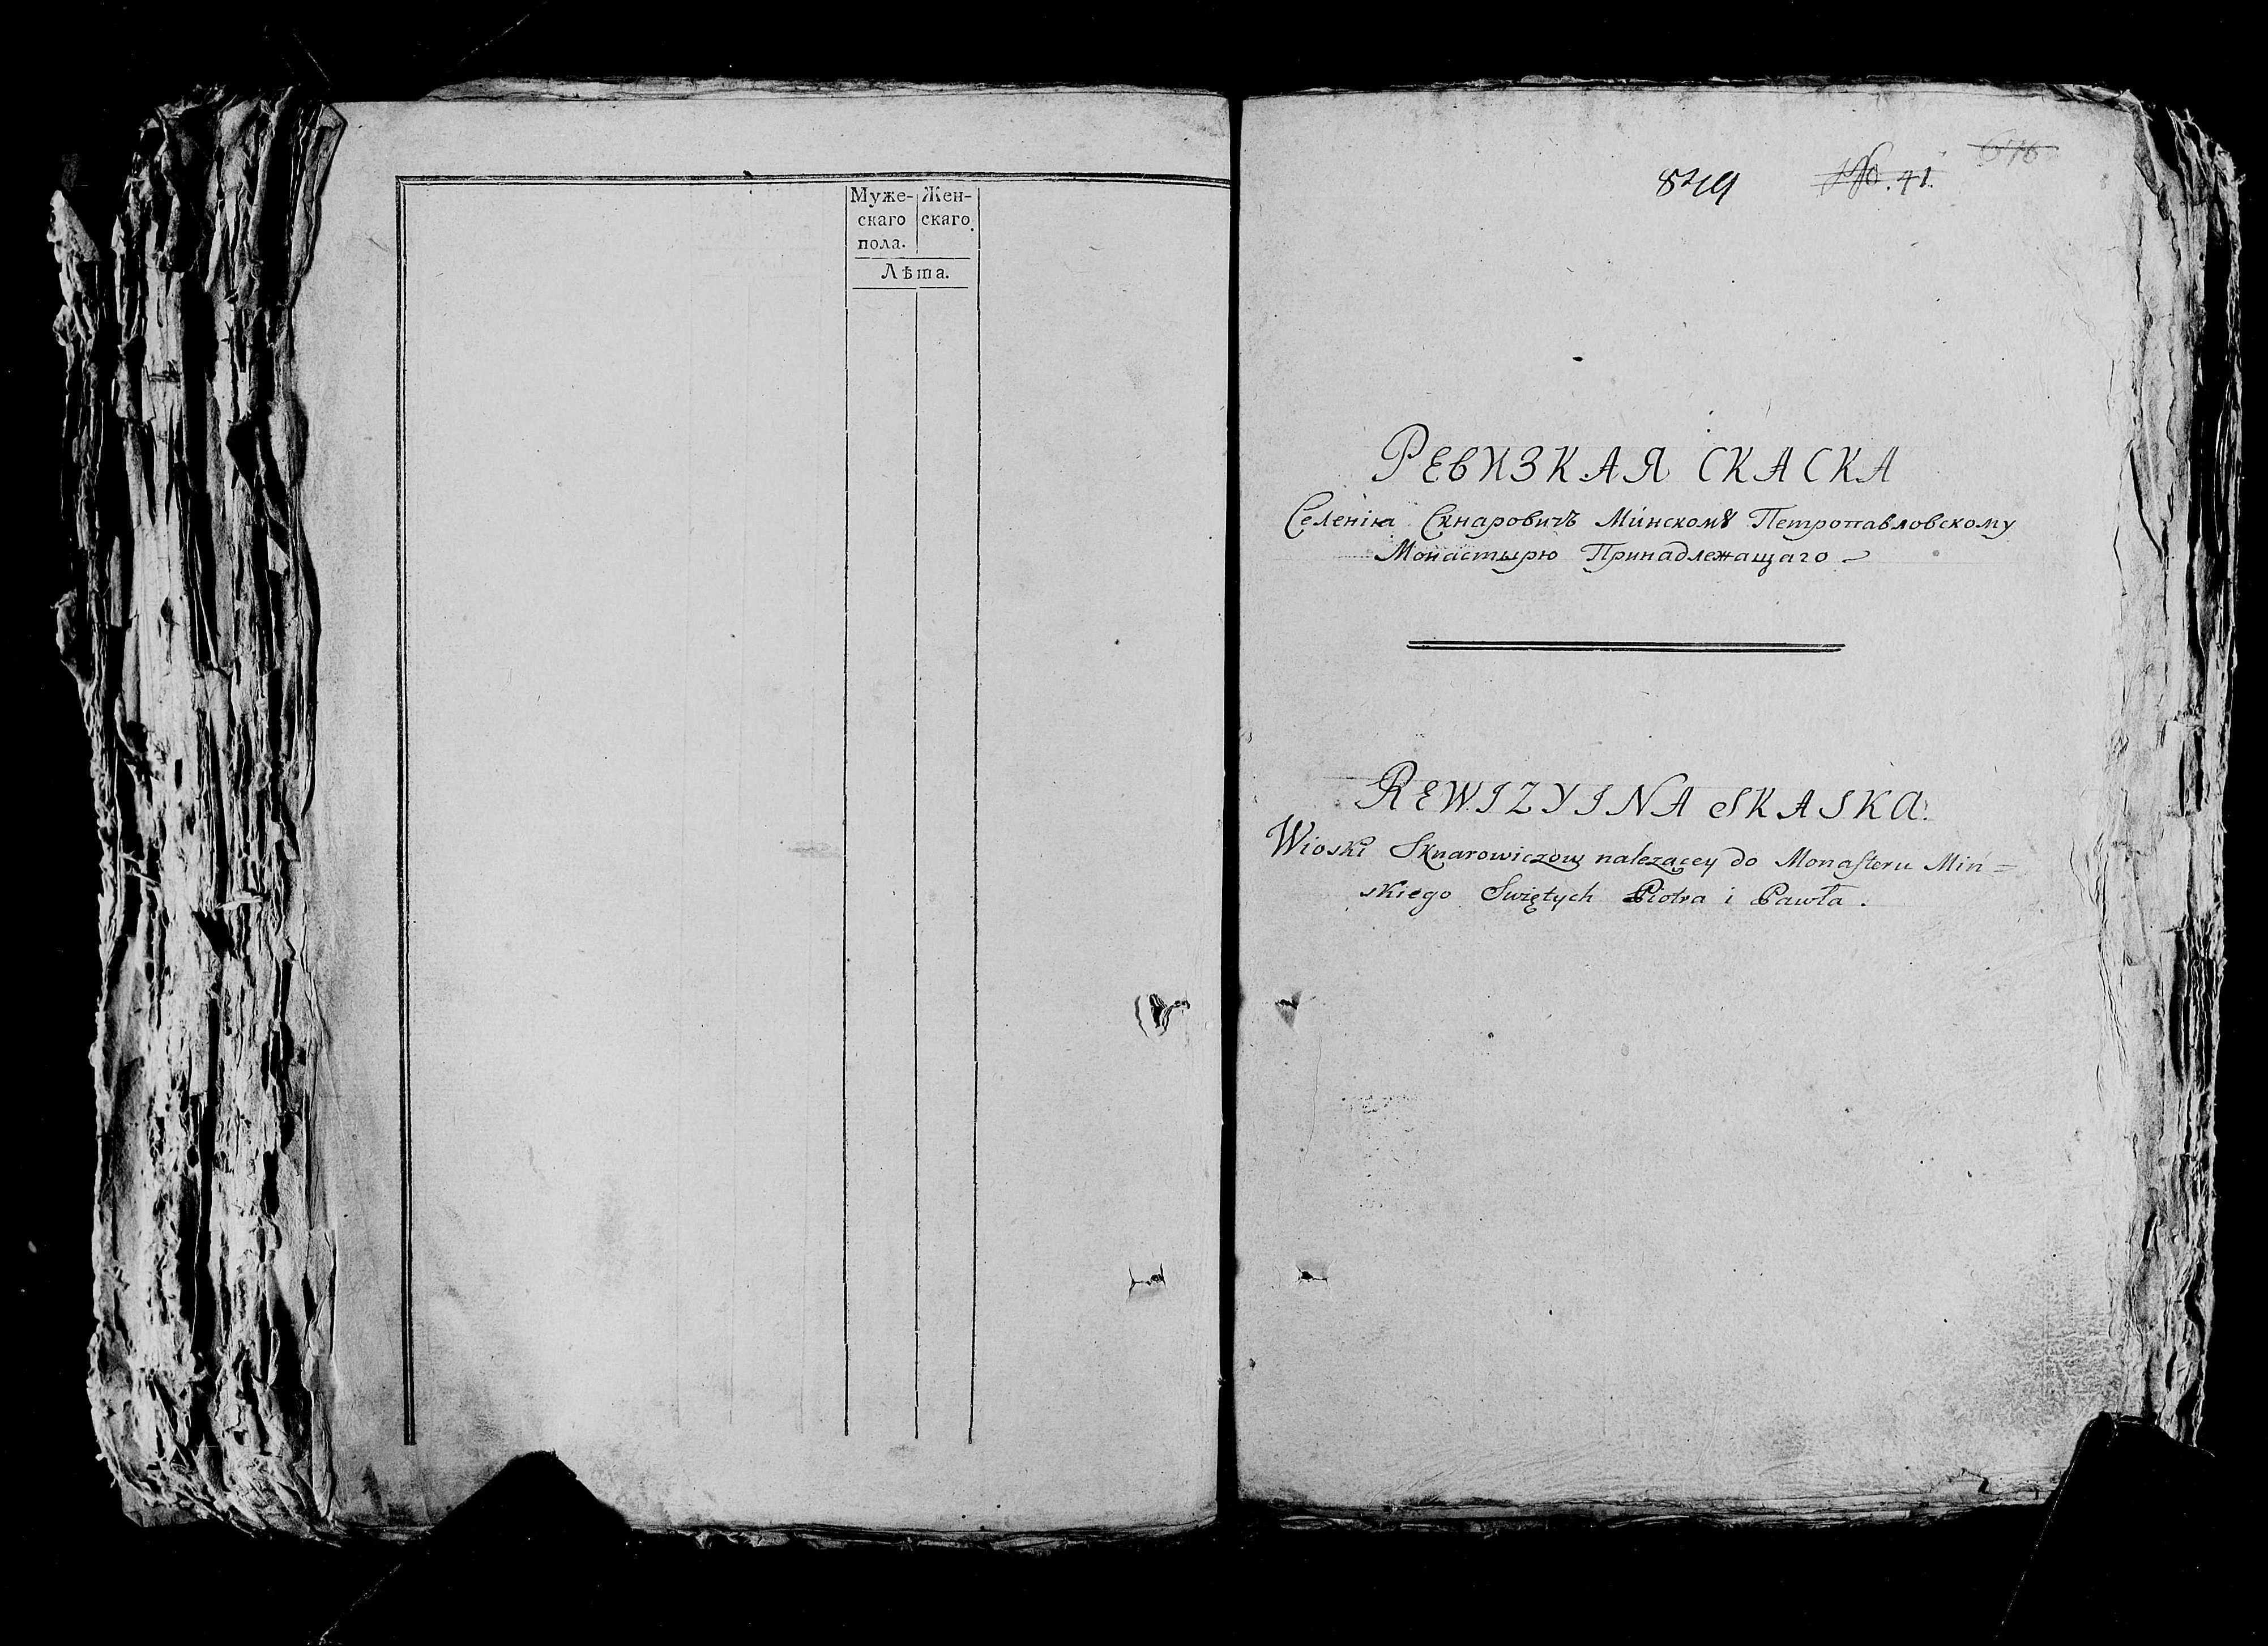 Муже- Жен-
скаго скаго.
пола.
Лѣта.
849 No. 41. 676
РЕВИЗКАЯ СКАСКА
Селенія Скнаровичъ Минскомꙋ Петропавловскому
Монастырю Принадлежащаго
REWIZYINA SKASKA.
Wioski Sknarowiczow należącey do Monasteru Miń=
skiego Swiętych Piotra i Pawła.